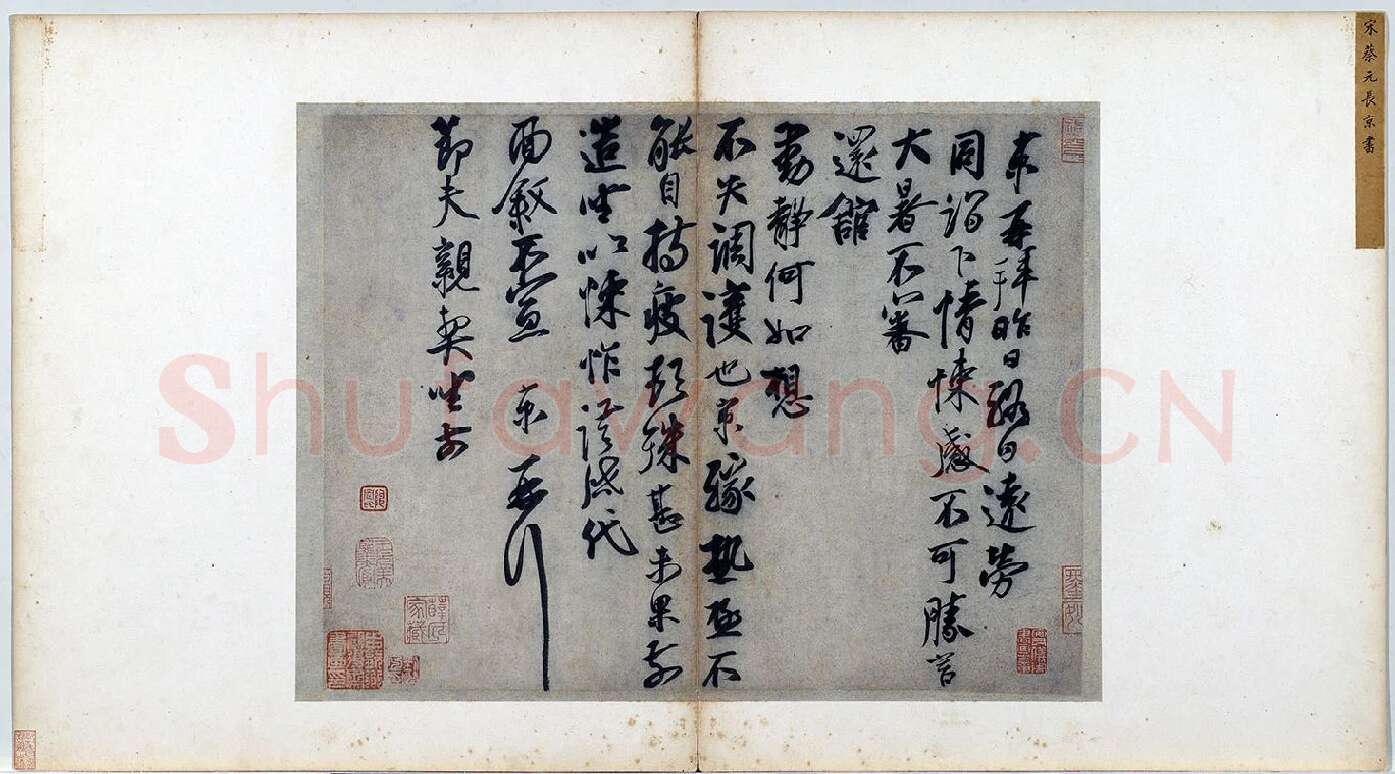 宋蔡元長京書
京再拜昨日終日遠勞
同詣下情悚感不可勝言
大暑不審
還館
動靜何如想
不失調護也京緣熱極不
能自持疲頓殊甚未果前
造坐次悚怍謹啟代
面敘不宣 京再拜
節夫親契坐前
Shufawang.CN